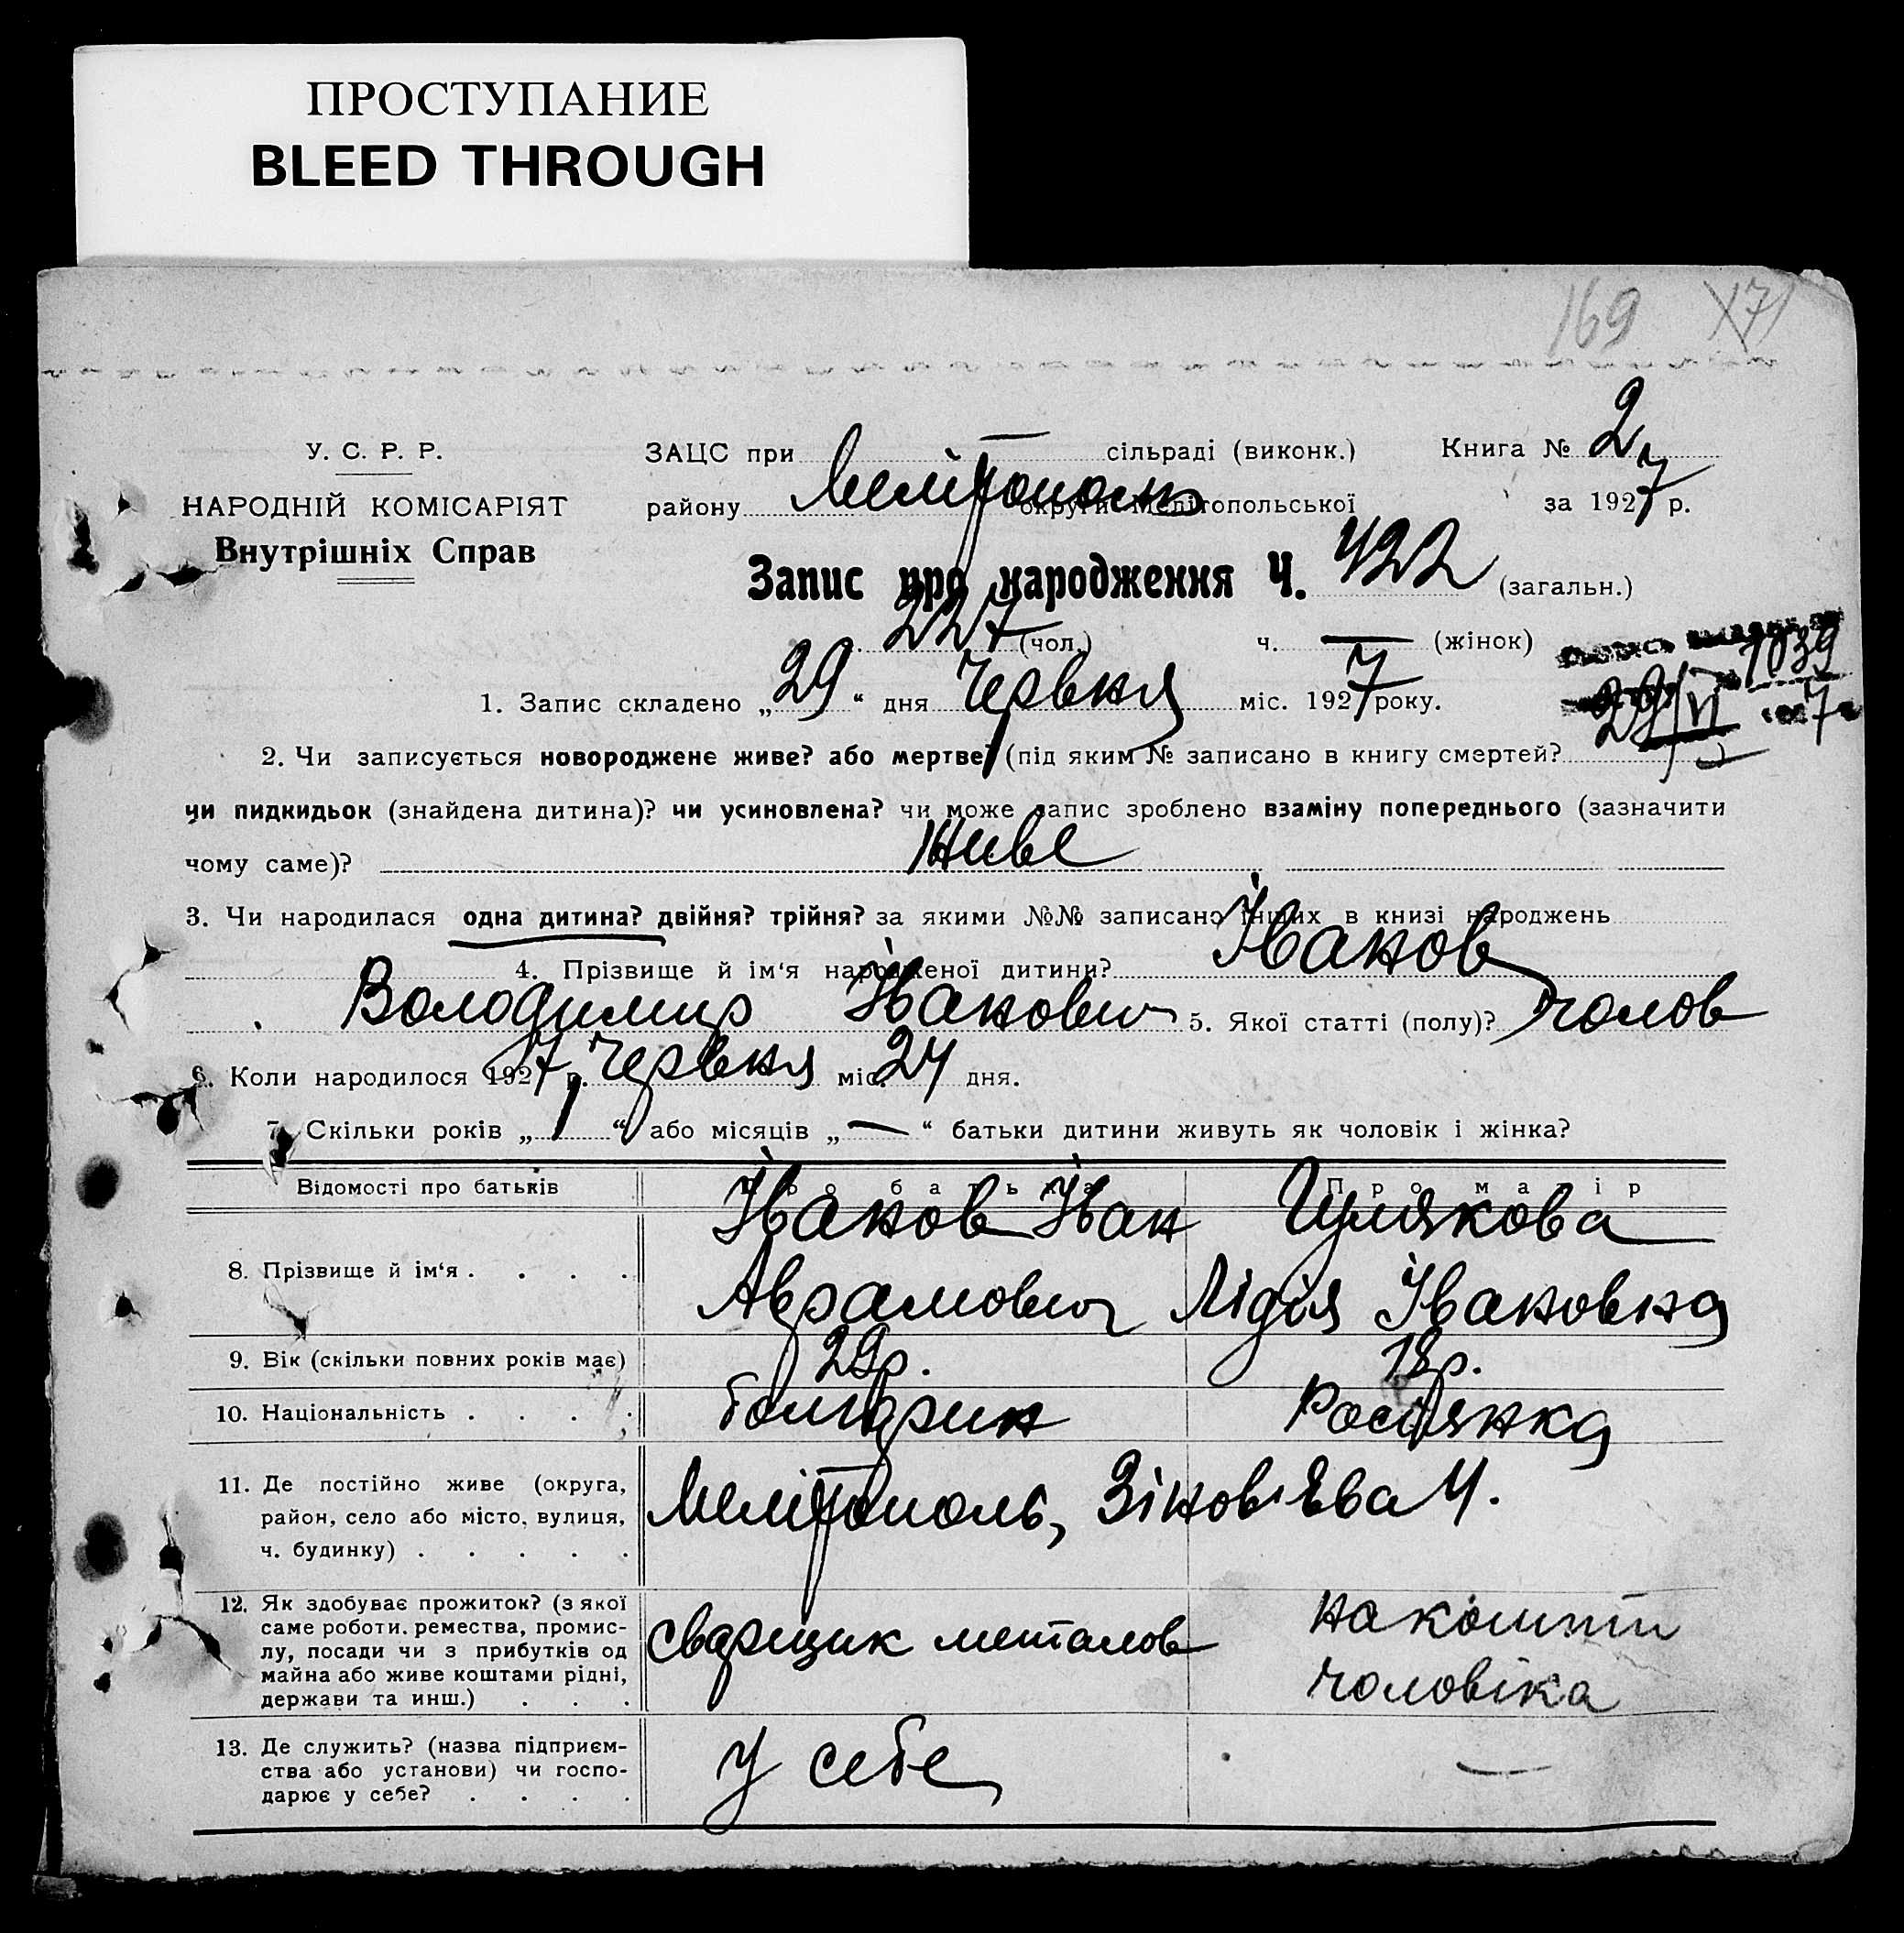 ПРОСТУПАНИЕ
BLEED THROUGH
169 171
У. С. Р. Р.
НАРОДНІЙ КОМІСАРІЯТ
Внутрішніх Справ
ЗАЦС при — сільраді (виконк.) Книга № 2
району Мелітополь округи Мелітопольської за 1927 р.
Запис про народження Ч. 422 (загальн.)
227 (чол.) ч. — (жінок)
1039
29/VI 7
1. Запис складено „29“ дня Червня міс. 1927 року.
2. Чи записується новороджене живе? або мертве? (під яким № записано в книгу смертей?
чи пидкидьок (знайдена дитина)? чи усиновлена? чи може запис зроблено взаміну попереднього (зазначити
чому саме)? живе
3. Чи народилася одна дитина? двійня? трійня? за якими №№ записано інших в книзі народжень
4. Прізвище й ім‘я народженої дитини? Іванов
Володимир Іванович 5. Якої статті (полу)? чолов
6. Коли народилося 1927 р. Червня міс. 24 дня.
7. Скільки років „1“ або місяців „—“ батьки дитини живуть як чоловік і жінка?
Відомості про батьків Про батька Про матір
8. Прізвище й ім‘я . . . .
Іванов Іван
Аврамович
Гулякова
Лідія Івановна
9. Вік (скільки повних років має) 29 р. 18 р.
10. Національність . . . . болгарин Росіянка
11. Де постійно живе (округа,
район, село або місто, вулиця,
ч. будинку) . . . . .
Мелітополь, Зінов'Ева 4.
12. Як здобуває прожиток? (з якої
саме роботи. ремества, промис-
лу, посади чи з прибутків од
майна або живе коштами рідні,
держави та инш.) . . .
сварщик металов
на кошти
чоловіка
13. Де служить? (назва підприєм-
ства або установи) чи госпо-
дарює у себе? . . . .
у себе
—